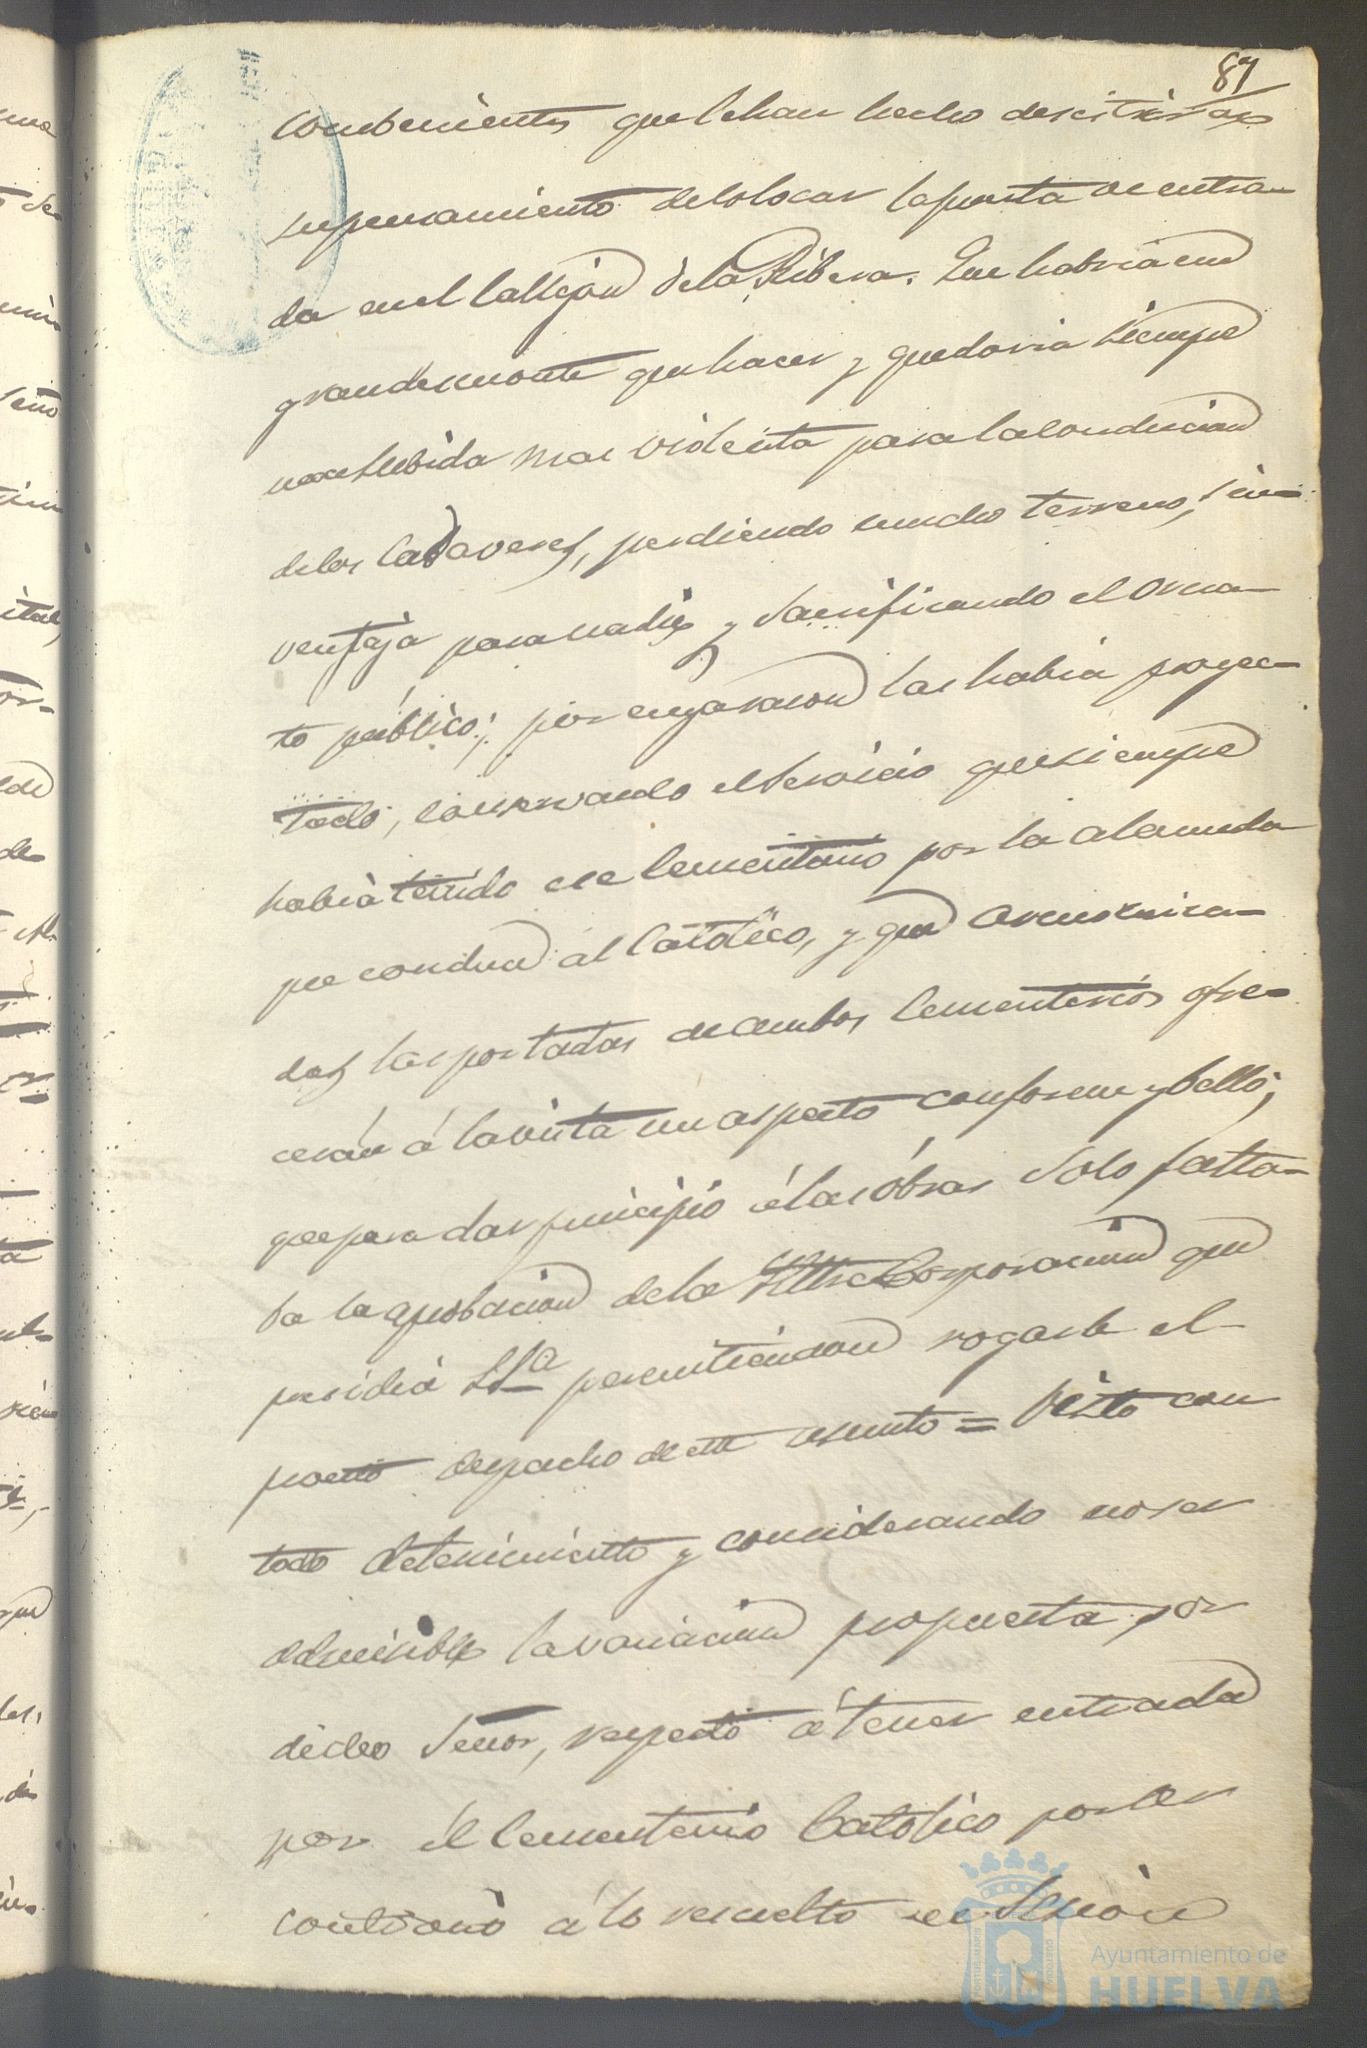 87
combenientes que lehan hecho desistir de
supensamiento decolocar lapuerta de entra-
da enel Callejon dela Ribera. Que habria un
grandesmonte que hacer y quedaria siempre
una subida mas violenta para la conducion
delos Cadaveres, perdiendo mucho terreno, sin
ventaja para nadie y sacrificando el orna-
to público; por cuya razon las habia proyec-
tado, conservando elservicio que siempre
habia tenido ese Cementerio por la alameda
que conduce al Catolico, y que armoniza-
das las portadas de ambos Cementerios ofre-
cerán á lavista un aspecto conforme y bello;
que para dar principio á las óbras solo falta-
ba la aprobacion dela Iltre Corporacion que
presidia SSª permitiendose rogarle el
pronto despacho de este asunto = Visto con
todo detenimiento y considerando no ser
admisible la variacion propuesta por
dicho Señor, respecto á tener entrada
por el Cementerio Catolico por ser
contrario á lo resuelto en Sesion
Ayuntamiento de
HUELVA